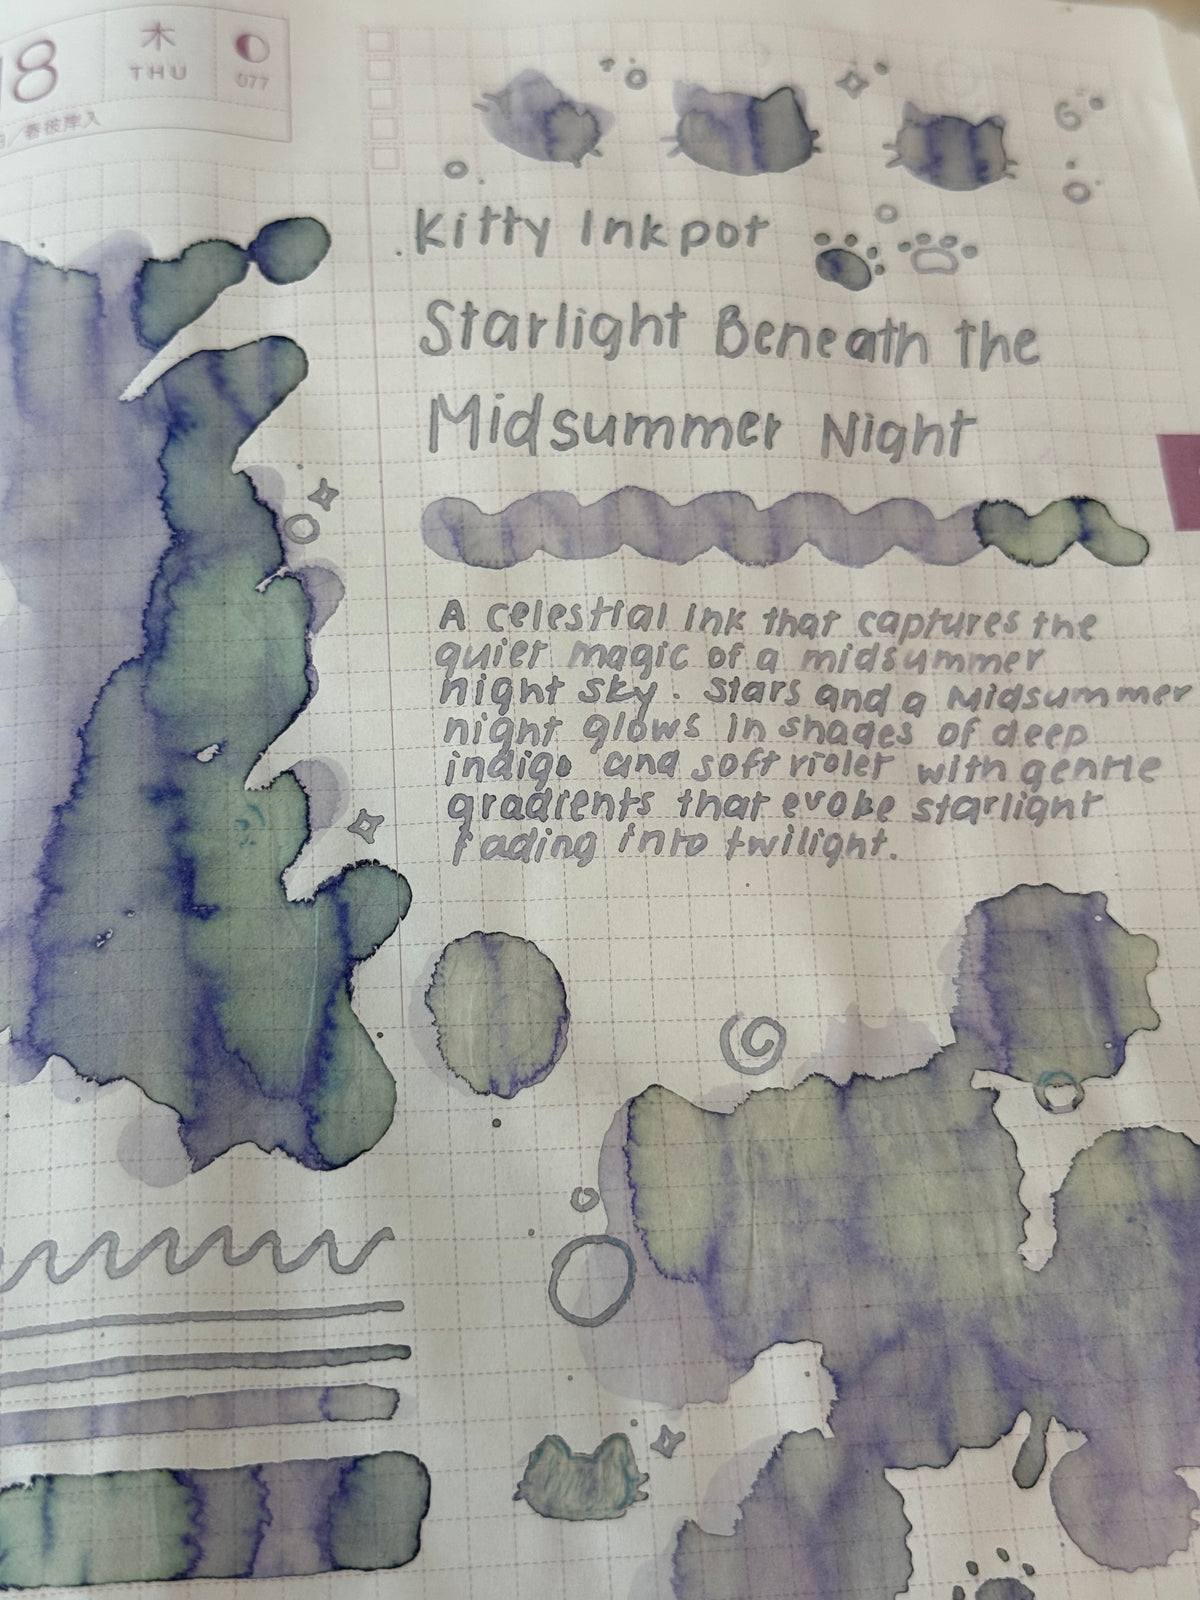 18
木
THU
077
春彼岸入
Kitty Inkpot
Starlight Beneath the
Midsummer Night
A celestial ink that captures the
quiet magic of a midsummer
night sky. Stars and a Midsummer
night glows in shades of deep
indigo and soft violet with gentle
gradients that evoke starlight
fading into twilight.